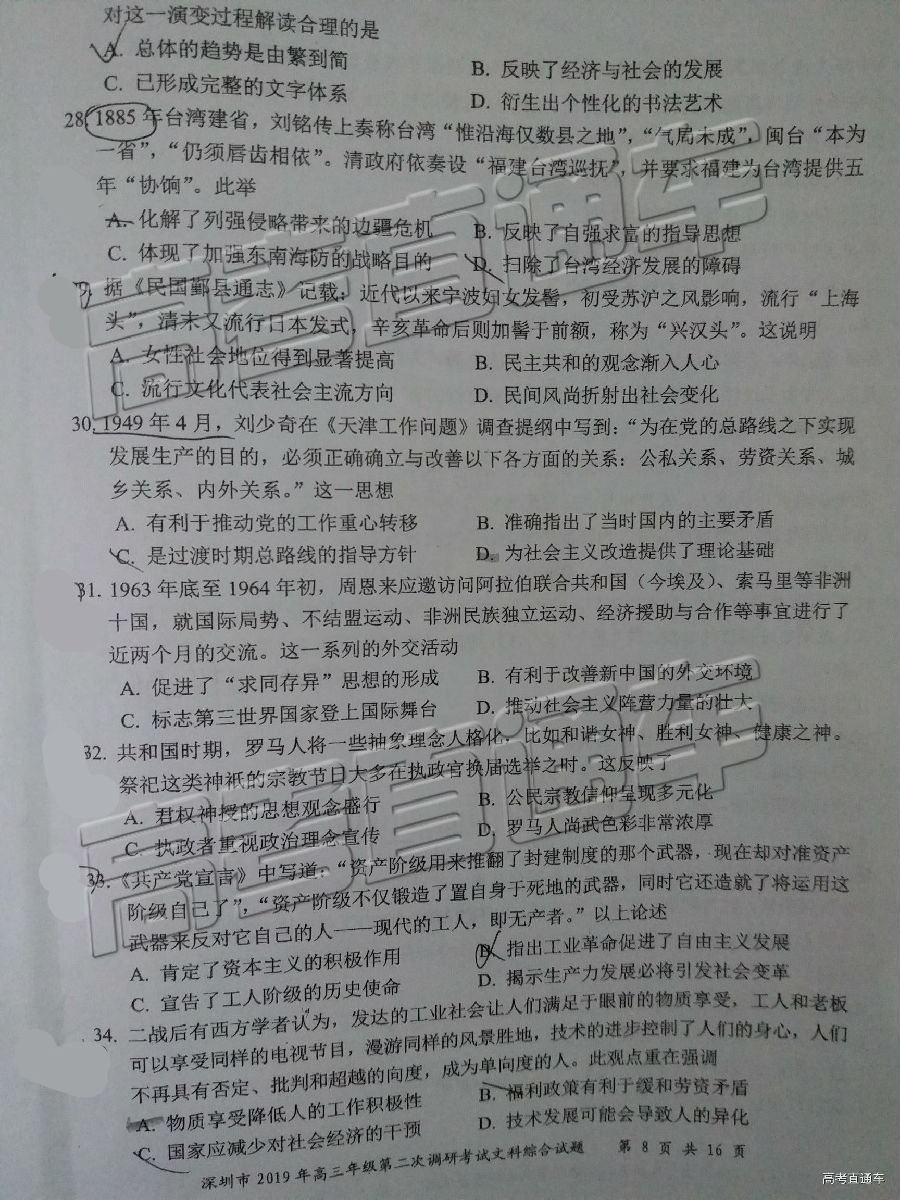 对这一演变过程解读合理的是
A. 总体的趋势是由繁到简
B. 反映了经济与社会的发展
C. 已形成完整的文字体系
D. 衍生出个性化的书法艺术
28. 1885 年台湾建省，刘铭传上奏称台湾“惟沿海仅数县之地”，“气局未成”，闽台“本为
一省”，“仍须唇齿相依”。清政府依奏设“福建台湾巡抚”，并要求福建为台湾提供五
年“协饷”。此举
A. 化解了列强侵略带来的边疆危机
B. 反映了自强求富的指导思想
C. 体现了加强东南海防的战略目的
D. 扫除了台湾经济发展的障碍
据《民国鄞县通志》记载：近代以来宁波妇女发髻，初受苏沪之风影响，流行“上海
头”，清末又流行日本发式，辛亥革命后则加髻于前额，称为“兴汉头”。这说明
A. 女性社会地位得到显著提高
B. 民主共和的观念渐入人心
C. 流行文化代表社会主流方向
D. 民间风尚折射出社会变化
30. 1949 年 4 月，刘少奇在《天津工作问题》调查提纲中写到：“为在党的总路线之下实现
发展生产的目的，必须正确确立与改善以下各方面的关系：公私关系、劳资关系、城
乡关系、内外关系。”这一思想
A. 有利于推动党的工作重心转移
B. 准确指出了当时国内的主要矛盾
C. 是过渡时期总路线的指导方针
D. 为社会主义改造提供了理论基础
31. 1963 年底至 1964 年初，周恩来应邀访问阿拉伯联合共和国（今埃及）、索马里等非洲
十国，就国际局势、不结盟运动、非洲民族独立运动、经济援助与合作等事宜进行了
近两个月的交流。这一系列的外交活动
A. 促进了“求同存异”思想的形成
B. 有利于改善新中国的外交环境
C. 标志第三世界国家登上国际舞台
D. 推动社会主义阵营力量的壮大
32. 共和国时期，罗马人将一些抽象理念人格化，比如和谐女神、胜利女神、健康之神。
祭祀这类神祇的宗教节日大多在执政官换届选举之时。这反映了
A. 君权神授的思想观念盛行
B. 公民宗教信仰呈现多元化
C. 执政者重视政治理念宣传
D. 罗马人尚武色彩非常浓厚
33. 《共产党宣言》中写道：“资产阶级用来推翻了封建制度的那个武器，现在却对准资产
阶级自己了”，“资产阶级不仅锻造了置自身于死地的武器，同时它还造就了将运用这
武器来反对它自己的人——现代的工人，即无产者。”以上论述
A. 肯定了资本主义的积极作用
B. 指出工业革命促进了自由主义发展
C. 宣告了工人阶级的历史使命
D. 揭示生产力发展必将引发社会变革
34. 二战后有西方学者认为，发达的工业社会让人们满足于眼前的物质享受，工人和老板
可以享受同样的电视节目，漫游同样的风景胜地，技术的进步控制了人们的身心，人们
不再具有否定、批判和超越的向度，成为单向度的人。此观点重在强调
A. 物质享受降低人的工作积极性
B. 福利政策有利于缓和劳资矛盾
C. 国家应减少对社会经济的干预
D. 技术发展可能会导致人的异化
深圳市 2019 年高三年级第二次调研考试文科综合试题 第 8 页 共 16 页
高考直通车
高考直通车
高考直通车